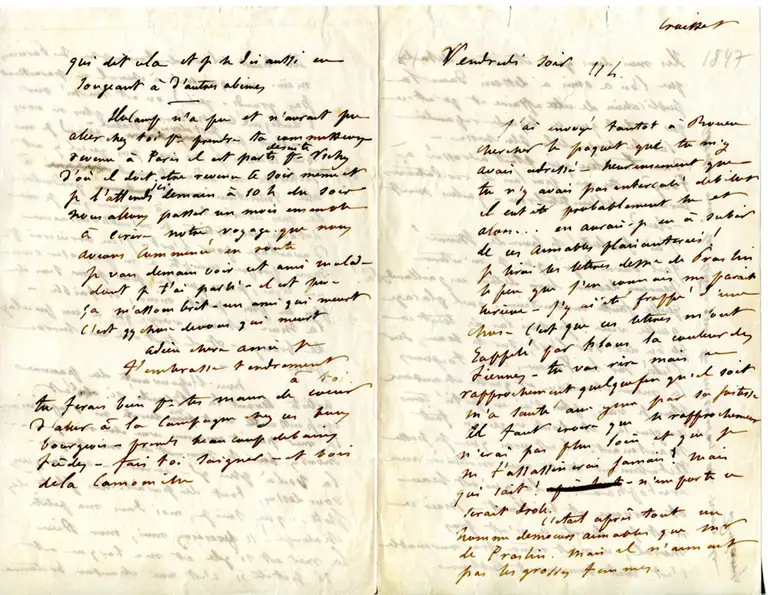 qui dit cela et je le dis aussi en
songeant à d'autres abîmes
Ducamp n'a pu et n'aurait pu
aller chez toi pr prendre ta commission
revenu à Paris il est parti de suite pr Vichy
d'où il doit être revenu ce soir même et
je l'attends ici demain à 10 h du soir
nous allons passer un mois ensemble
à écrire notre voyage que nous
avions commencé en route
je vais demain voir cet ami malade
dont je t'ai parlé - il est pire
ça m'assombrit - un ami qui meurt
c'est qq chose de vous qui meurt
adieu chère amie je
t'embrasse tendrement
à toi
tu ferais bien pr tes maux de cœur
d'aller à la campagne chez ces bons
bourgeois - prends beaucoup de bains
tièdes - fais toi soigner - et bois
de la camomille
Croisset
1847
Vendredi soir 11 h.
j'ai envoyé tantôt à Rouen
chercher le paquet que tu m'y
avais adressé - heureusement que
tu n'y avais pas intercalé de billet
il eut été probablement lu et
alors... en aurais-je eu à subir
de ces aimables plaisanteries!
je lirai les lettres de Me de Praslin
le peu que j'en connais me paraît
- j'y ai été frappé d'une
chose c'est que ces lettres m'ont
rappelé par places la couleur des
tiennes - tu vas rire mais ce
rapprochement quelque fou qu'il soit
m'a sauté aux yeux par sa justesse
Il faut croire que le rapprochement
n'irait pas plus loin et que je
ne t'assassinerai jamais! mais
qui sait! - n'importe ce
serait drôle.
C'était après tout un
homme de mœurs aimables que mr
de Praslin. mais il n'aimait
pas les grosses femmes.